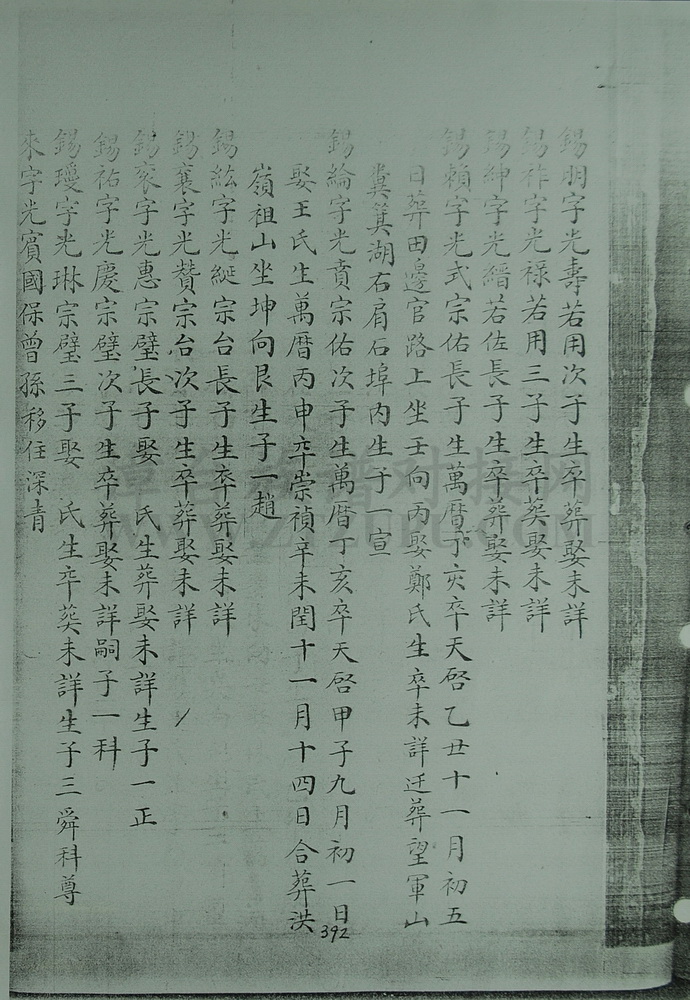 錫明字光壽若用次子生卒葬娶未詳
錫祚字光祿若用三子生卒葬娶未詳
錫紳字光縉若佐長子生卒葬娶未詳
錫賴字光式宗佑長子生萬曆丁亥卒天啓乙丑十一月初五
日葬田邊官路上坐壬向丙娶鄭氏生卒未詳迁葬望軍山
糞箕湖右肩石埠內生子一宣
錫綸字光賁宗佑次子生萬曆丁亥卒天啓甲子九月初一日
娶王氏生萬曆丙申卒崇禎辛未閏十一月十四日合葬洪
嶺祖山坐坤向艮生子一趙
錫紘字光綖宗台長子生卒葬娶未詳
錫襄字光贊宗台次子生卒葬娶未詳
錫衮字光惠宗璧長子娶 氏生葬娶未詳生子一正
錫祐字光慶宗璧次子生卒葬娶未詳嗣子一科
錫瓊字光琳宗璧三子娶 氏生卒葬未詳生子三舜科尊
來字光賓國保曾孫移住深青
392